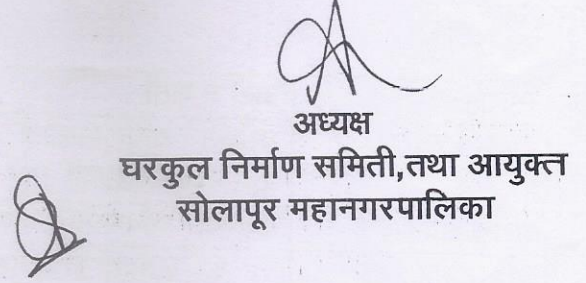 अध्यक्ष
घरकुल निर्माण समिती,तथा आयुक्त
सोलापूर महानगरपालिका